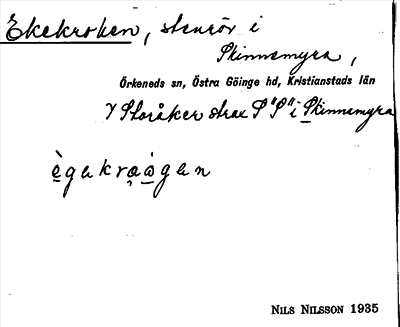 Ekekroken, stenrör i
Skinnsmyra,
Örkeneds sn, Östra Göinge hd, Kristianstads län
V Storåker strax S "S" i Skinnsmyra
ègekrạågen
NILS NILSSON 1935